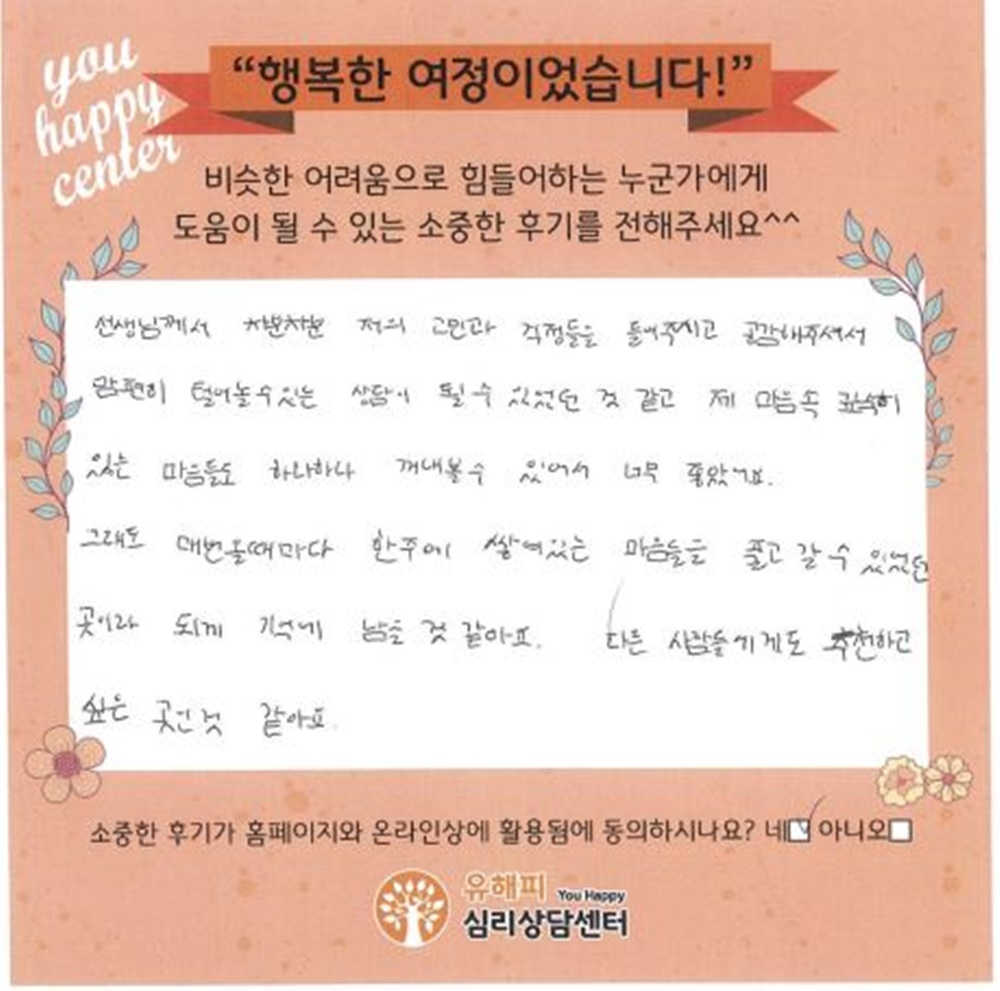 you
happy
center
“행복한 여정이었습니다!”
비슷한 어려움으로 힘들어하는 누군가에게
도움이 될 수 있는 소중한 후기를 전해주세요^^
선생님께서 차분차분 저의 고민과 걱정들을 들어주시고 공감해주셔서
맘편히 털어놓을수있는 상담이 될 수 있었던 것 같고 제 마음속 깊숙히
있는 마음들도 하나하나 꺼내볼수 있어서 너무 좋았어요.
그래도 매번올때마다 한주에 쌓여있는 마음들을 풀고 갈 수 있었던
곳이라 되게 기억에 남을 것 같아요. 다른 사람들에게도 추천하고
싶은 곳인것 같아요.
소중한 후기가 홈페이지와 온라인상에 활용됨에 동의하시나요? 네 아니오
유해피 You Happy
심리상담센터